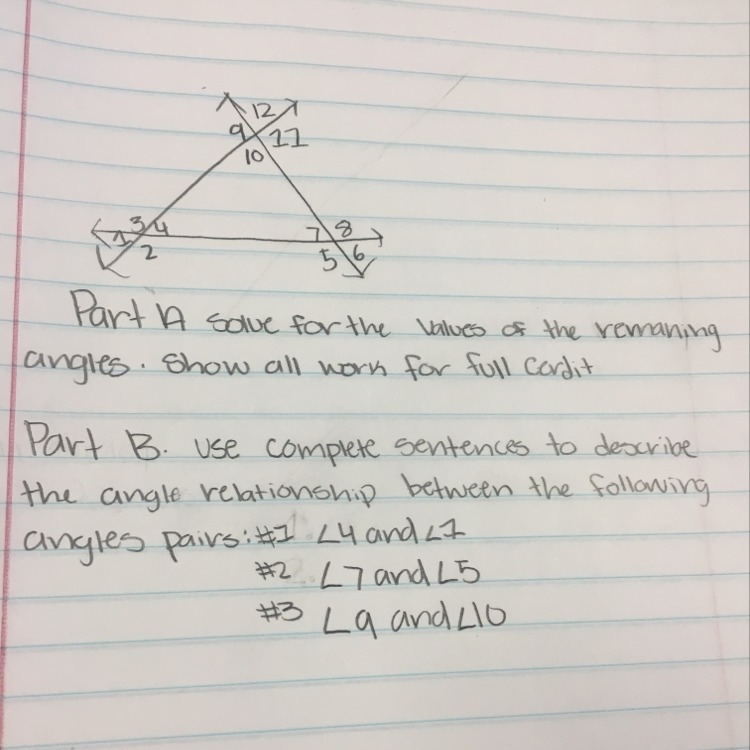 12
9 11
10
3 4 7 8
1 2 5 6
Part A solve for the values of the remaning
angles. Show all work for full cordit
Part B. use complete sentences to describe
the angle relationship between the following
angles pairs: #1 ∠4 and ∠1
#2 ∠7 and ∠5
#3 ∠9 and ∠10